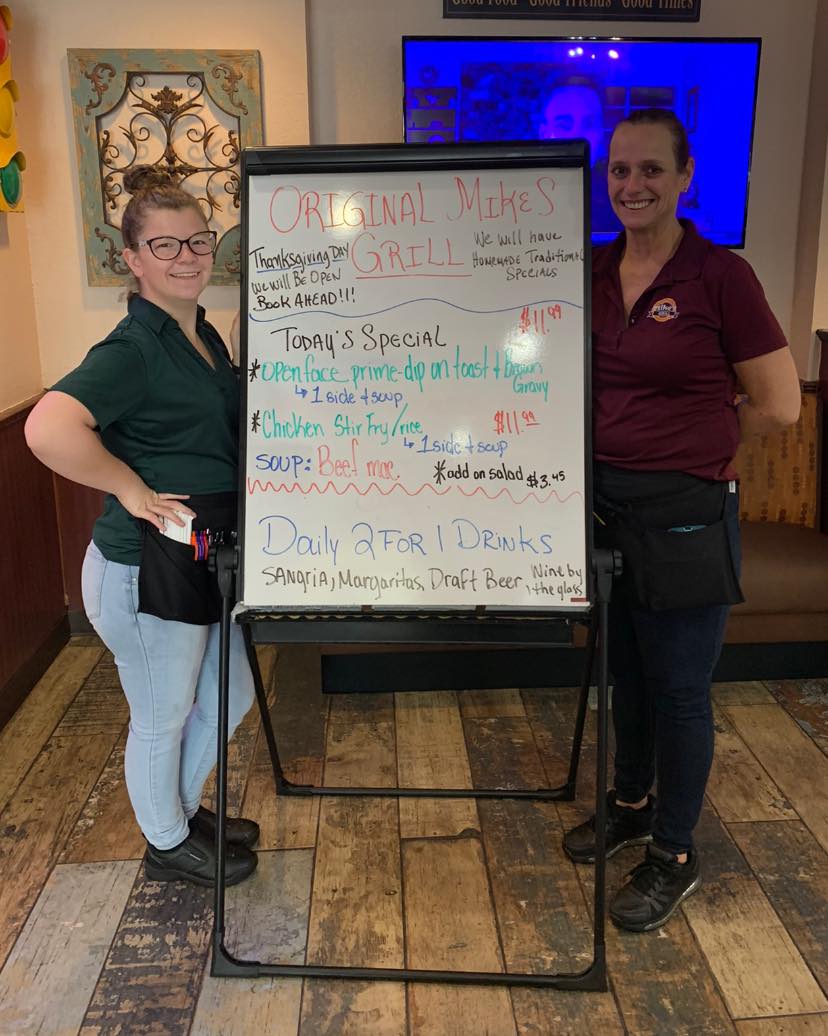 Good Food · Good Friends · Good Times
ORIGINAL MIKES
GRILL
Thanksgiving DAY
We will Be OPEN
Book AHEAD!!!
We will have
Homemade Traditional
Specials
TODAY'S SPECIAL
$11.99
*Openface prime-dip on toast + Brown
Gravy
↳ 1 side + soup
*Chicken Stir Fry/rice
$11.99
↳ 1 side + soup
SOUP: Beef mac.
*add on salad $3.45
Daily 2 FOR 1 DRINKS
SANGRIA, Margaritas, Draft Beer, Wine by
the glass
Mike's
GRILL